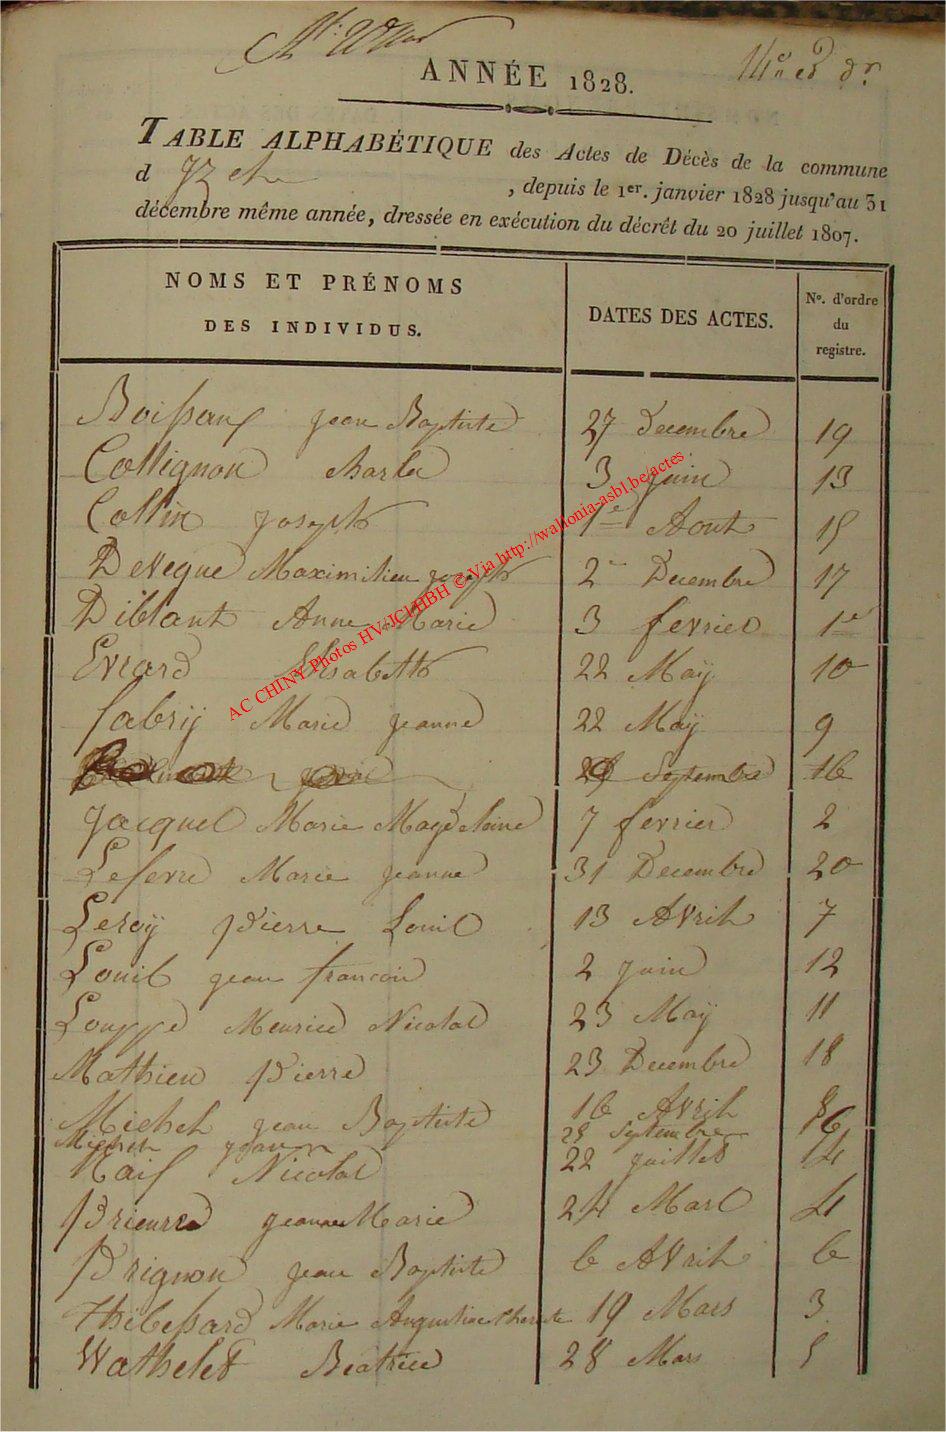 ANNÉE 1828.
TABLE ALPHABÉTIQUE des Actes de Décès de la commune
d , depuis le 1er. janvier 1828 jusqu'au 31
décembre même année, dressée en exécution du décrêt du 20 juillet 1807.
NOMS ET PRÉNOMS DES INDIVIDUS. DATES DES ACTES. No. d'ordre du registre.
jean Baptiste 27 Decembre 19
Collignon Charles 3 juin 13
Collin joseph 1e Aout 15
Devegue Maximilien joseph 2 Decembre 17
Diblant Anne Marie 3 fevrier 1e
Evrard Elisabeth 22 Maÿ 10
fabrÿ Marie jeanne 22 Maÿ 9
Septembre 16
jacques Marie Magdelaine 7 fevrier 2
Lefevre Marie jeanne 31 Decembre 20
Leroÿ Pierre Louis 13 Avril 7
Louis jean francois 2 juin 12
Louppe Meurice Nicolas 23 Maÿ 11
Mathieu Pierre 23 Decembre 18
Michel jean Baptiste 16 Avril 8
Michel 28 Septembre 16
Nicolas 22 juillet 14
Prieure jeanne Marie 24 Mars 4
Prignon jean Baptiste 6 Avril 6
Thibessard Marie Augustine 19 Mars 3
Wathelet Beatrice 28 Mars 5
AC CHINY Photos HV-JCl-HBH © Via http://wallonia-asbl.be/actes